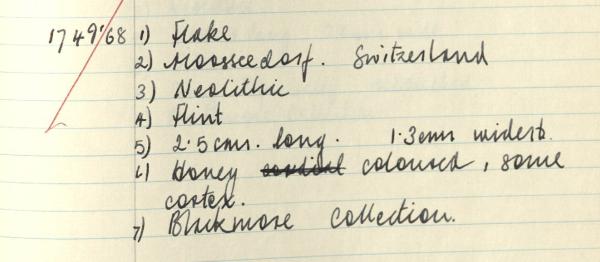 1749'68 1) Flake
2) Moosseedorf. Switzerland
3) Neolithic
4) Flint
5) 2.5cms. long. 1.3cms widest.
6) Honey coloured, some
cortex.
7) Blackmore Collection.